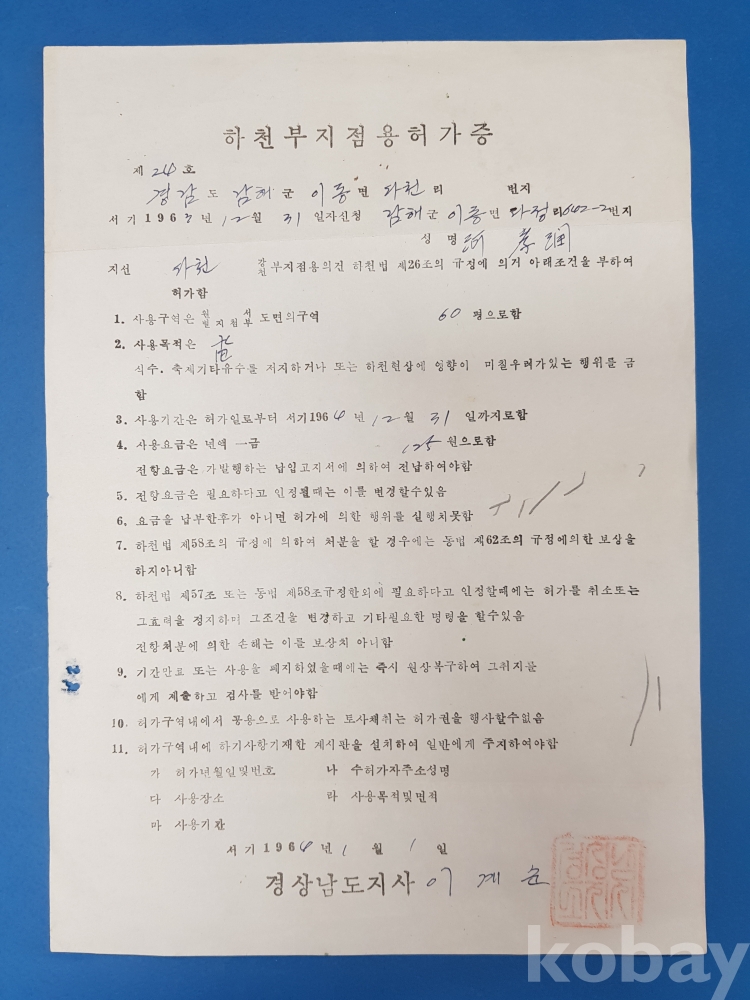 하천부지점용허가증
제 24 호
경남 도 김해 군 이동 면 화천 리 번지
서기 1963 년 12 월 31 일자신청 김해 군 이동 면 화정 리 602-2 번지
성 명
지선 화천 강천 부지점용의건 하천법 제26조의 규정에 의거 아래조건을 부하여
허가함
1. 사용구역은 도면의구역 60 평으로함
2. 사용목적은
식수. 축제기타유수를 저지하거나 또는 하천현상에 영향이 미칠우려가있는 행위를 금
함
3. 사용기간은 허가일로부터 서기1964 년 12 월 31 일까지로함
4. 사용요금은 년액 一금 125 원으로함
전항요금은 가발행하는 납입고지서에 의하여 전납하여야함
5. 전항요금은 필요하다고 인정될때는 이를 변경할수있음
6. 요금을 납부한후가 아니면 허가에 의한 행위를 실행치못함
7. 하천법 제58조의 규정에 의하여 처분을 할 경우에는 동법 제62조의 규정에의한 보상을
하지아니함
8. 하천법 제57조 또는 동법 제58조규정한외에 필요하다고 인정할때에는 허가를 취소또는
그효력을 정지하며 그조건을 변경하고 기타필요한 명령을 할수있음
전항처분에 의한 손해는 이를 보상치 아니함
9. 기간만료 또는 사용을 폐지하였을때에는 즉시 원상복구하여 그취지를
에게 제출하고 검사를 받어야함
10. 허가구역내에서 공용으로 사용하는 토사채취는 허가권을 행사할수없음
11. 허가구역내에 하기사항기재한 게시판을 설치하여 일반에게 주지하여야함
가 허가년월일및번호 나 수허가자주소성명
다 사용장소 라 사용목적및면적
마 사용기관
서기 1964 년 1 월 1 일
경상남도지사 이 계 순
kobay